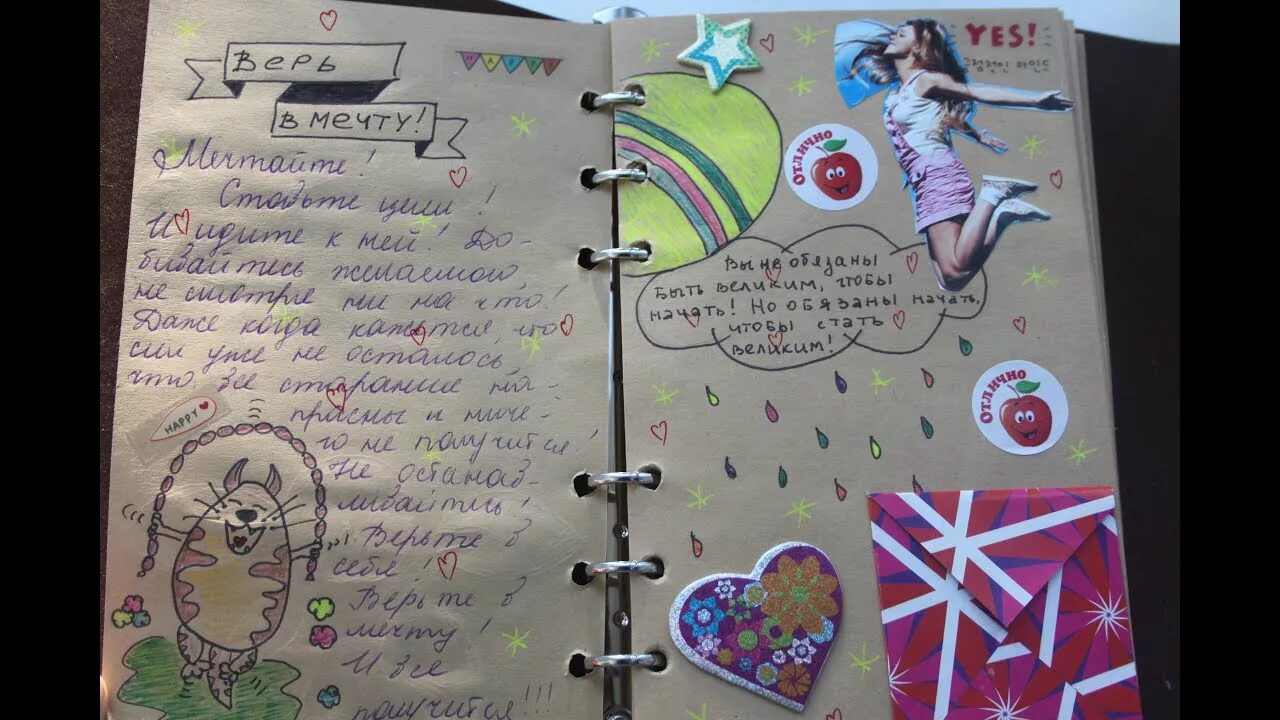 Верь
в мечту!
HAPPY
Мечтайте!
Ставьте цели!
И идите к ней! До-
бивайтесь желаемого,
не смотря ни на что!
Даже когда кажется, что
сил уже не осталось,
что, все старания на-
прасны и ниче-
го не получится!
Не останав-
ливайтесь!
Верьте в
себя!
Верьте в
мечту!
И все
получится!!!
HAPPY
YES!
긍정적인 마인드
Отлично
Вы не обязаны
быть великим, чтобы
начать! Но обязаны начать,
чтобы стать
великим!
Отлично